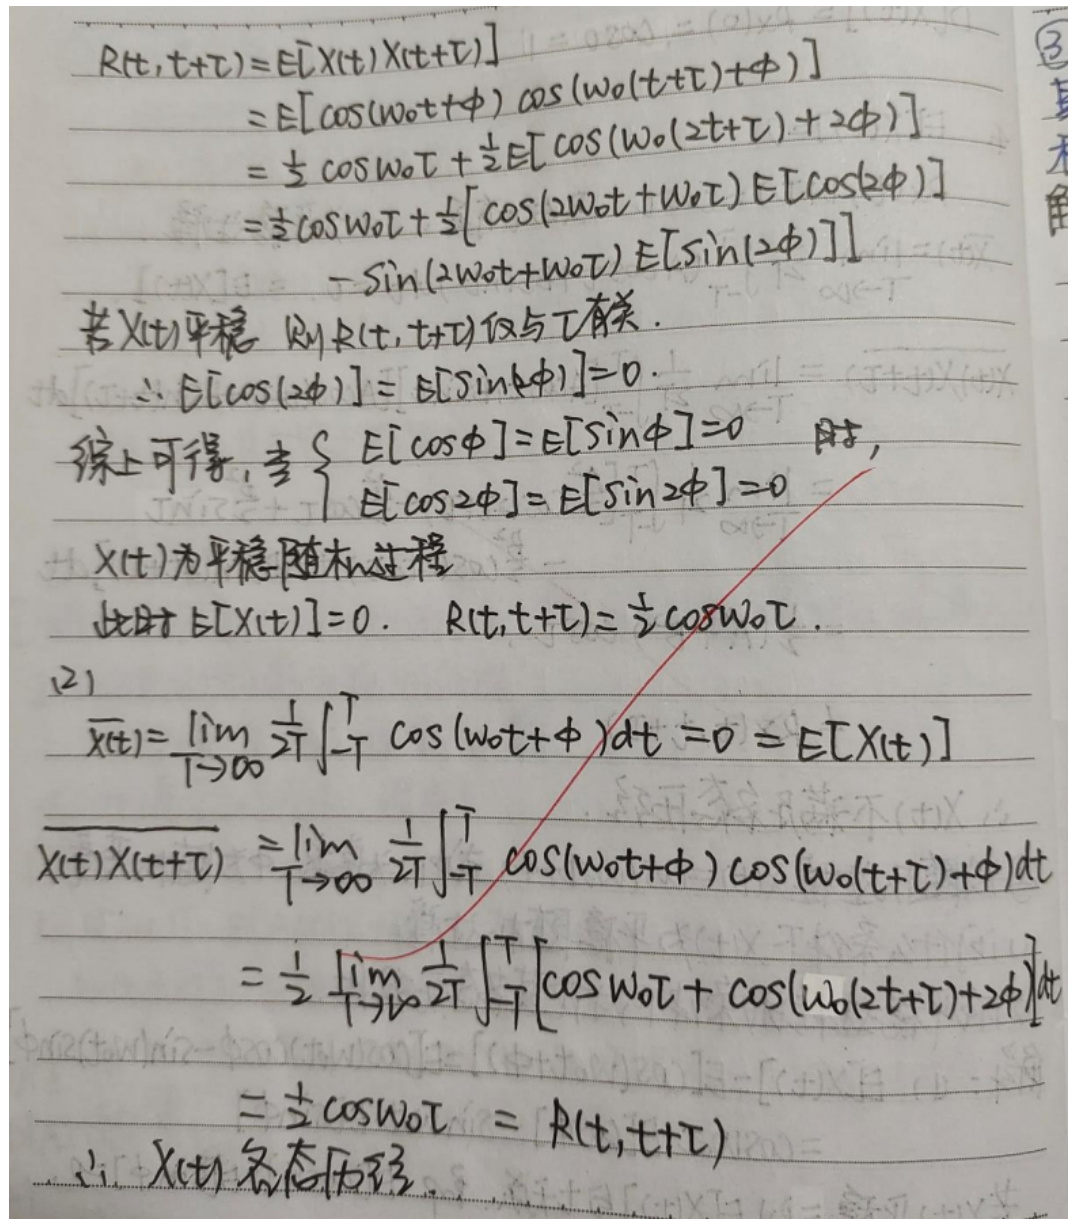 R(t, t+τ) = E[X(t) X(t+τ)]
= E[cos(ω₀t+Φ) cos(ω₀(t+τ)+Φ)]
= ½ cosω₀τ + ½E[cos(ω₀(2t+τ)+2Φ)]
= ½cosω₀τ + ½[cos(2ω₀t+ω₀τ) E[cos(2Φ)]
- sin(2ω₀t+ω₀τ) E[sin(2Φ)]]
若X(t)平稳 则R(t, t+τ)仅与τ有关.
∴ E[cos(2Φ)] = E[sin(2Φ)] = 0.
综上可得, 当 { E[cosΦ] = E[sinΦ] = 0 时,
E[cos2Φ] = E[sin2Φ] = 0
X(t)为平稳随机过程
此时 E[X(t)] = 0. R(t, t+τ) = ½ cosω₀τ.
(2)
\overline{X(t)} = lim_{T→∞} 1/2T ∫_{-T}^{T} cos(ω₀t+Φ)dt = 0 = E[X(t)]
\overline{X(t)X(t+τ)} = lim_{T→∞} 1/2T ∫_{-T}^{T} cos(ω₀t+Φ) cos(ω₀(t+τ)+Φ)dt
= ½ lim_{T→∞} 1/2T ∫_{-T}^{T} [cosω₀τ + cos(ω₀(2t+τ)+2Φ)]dt
= ½ cosω₀τ = R(t, t+τ)
∴ X(t) 各态历经.
③